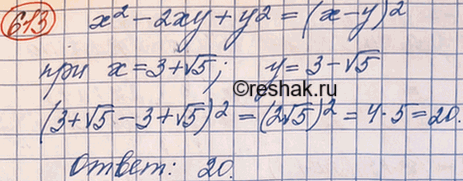 613 x² - 2xy + y² = (x-y)²
при x = 3+√5; y = 3-√5
©reshak.ru
(3+√5-3+√5)² = (2√5)² = 4·5 = 20.
Ответ: 20.